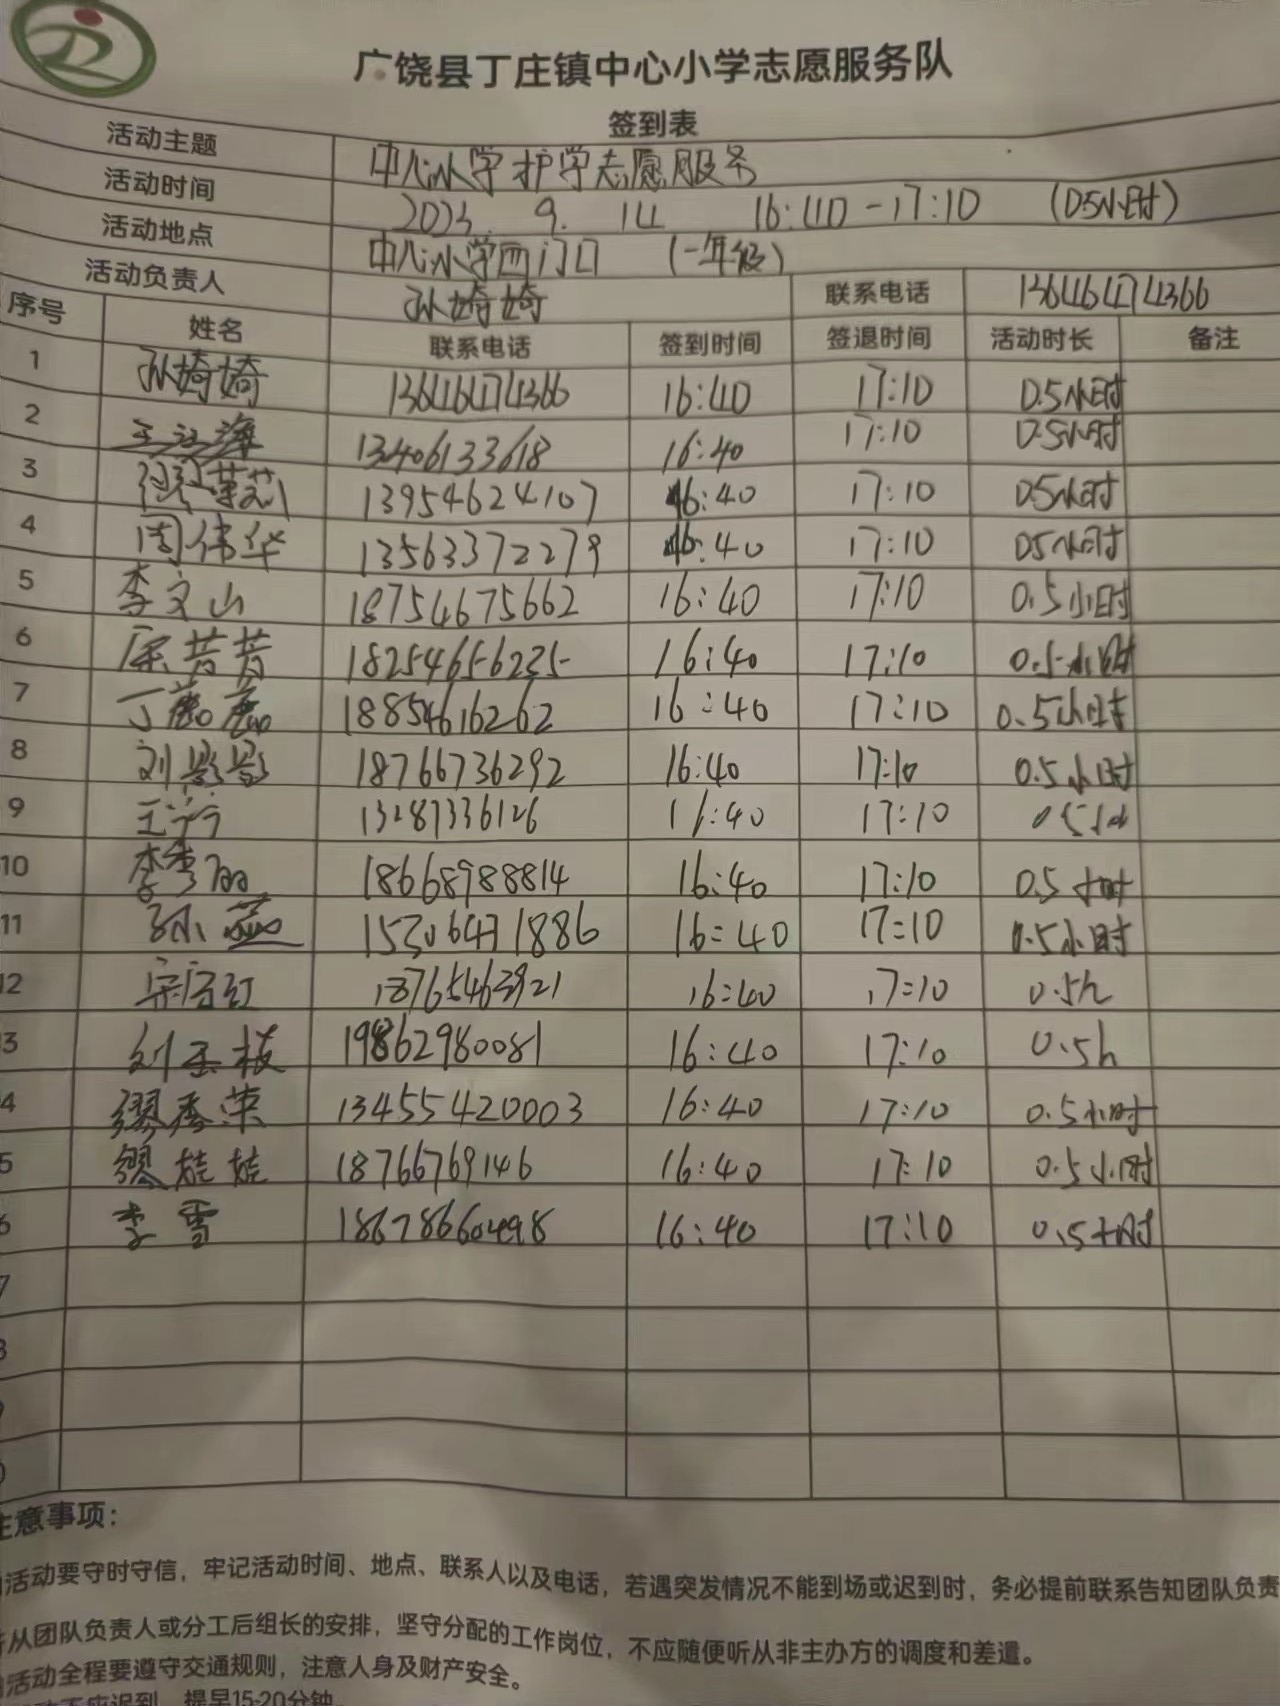 广饶县丁庄镇中心小学志愿服务队
签到表
活动主题 中心小学护学志愿服务
活动时间 2023. 9. 14 16:40-17:10 (0.5小时)
活动地点 中心小学西门口 (一年级)
活动负责人 孙婷婷 联系电话 13646474366
序号 姓名 联系电话 签到时间 签退时间 活动时长 备注
1 孙婷婷 13646474366 16:40 17:10 0.5小时
2 王江海 13406133618 16:40 17:10 0.5小时
3 13954624107 16:40 17:10 0.5小时
4 周伟华 13563372279 16:40 17:10 0.5小时
5 李文山 18754675662 16:40 17:10 0.5小时
6 18254656235 16:40 17:10 0.5小时
7 丁 18854616262 16:40 17:10 0.5小时
8 刘影影 18766736292 16:40 17:10 0.5小时
9 王 13287336126 16:40 17:10
10 李秀丽 18668988814 16:40 17:10 0.5小时
11 孙燕 16:40 17:10 0.5小时
12 18765463921 16:40 17:10 0.5h
3 刘玉枝 19862980081 16:40 17:10 0.5h
4 缪秀荣 13455420003 16:40 17:10 0.5小时
5 缪娃娃 18766769146 16:40 17:10 0.5小时
6 李雪 18678660498 16:40 17:10 0.5小时
7
8
9
0
注意事项：
活动要守时守信，牢记活动时间、地点、联系人以及电话，若遇突发情况不能到场或迟到时，务必提前联系告知团队负责
从团队负责人或分工后组长的安排，坚守分配的工作岗位，不应随便听从非主办方的调度和差遣。
活动全程要遵守交通规则，注意人身及财产安全。
不应迟到，提早15-20分钟